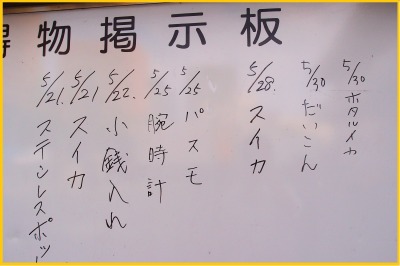 得物掲示板
5/30 ホタルイカ
5/30 だいこん
5/28. スイカ
5/25 パスモ
5/25 腕時計
5/22. 小銭入れ
5/21 スイカ
5/21. ステンレスポッ